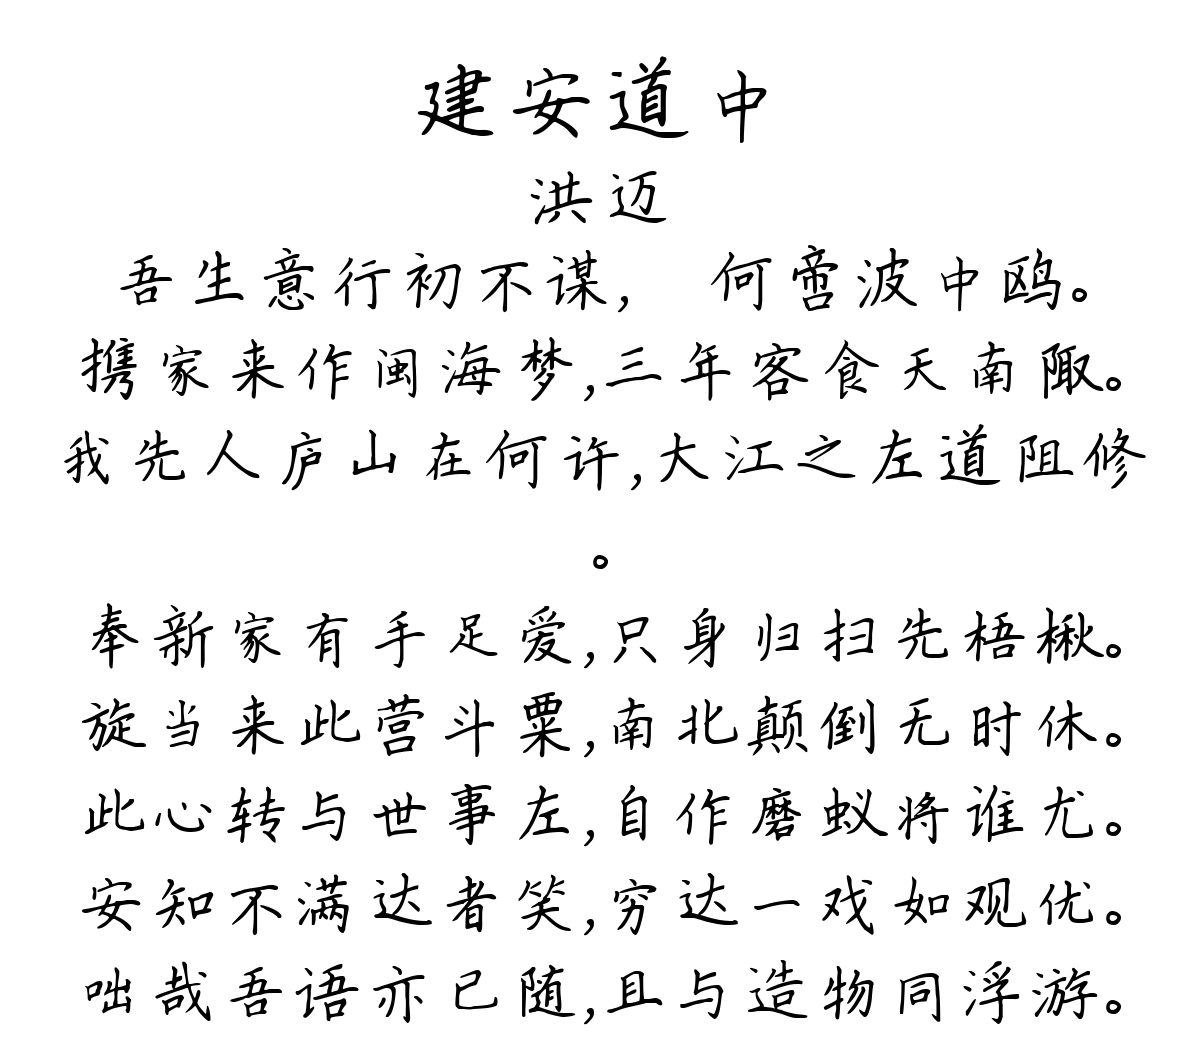 建安道中
洪迈
吾生意行初不谋, 何啻波中鸥。
携家来作闽海梦,三年客食天南陬。
我先人庐山在何许,大江之左道阻修
。
奉新家有手足爱,只身归扫先梧楸。
旋当来此营斗粟,南北颠倒无时休。
此心转与世事左,自作磨蚁将谁尤。
安知不满达者笑,穷达一戏如观优。
咄哉吾语亦已随,且与造物同浮游。